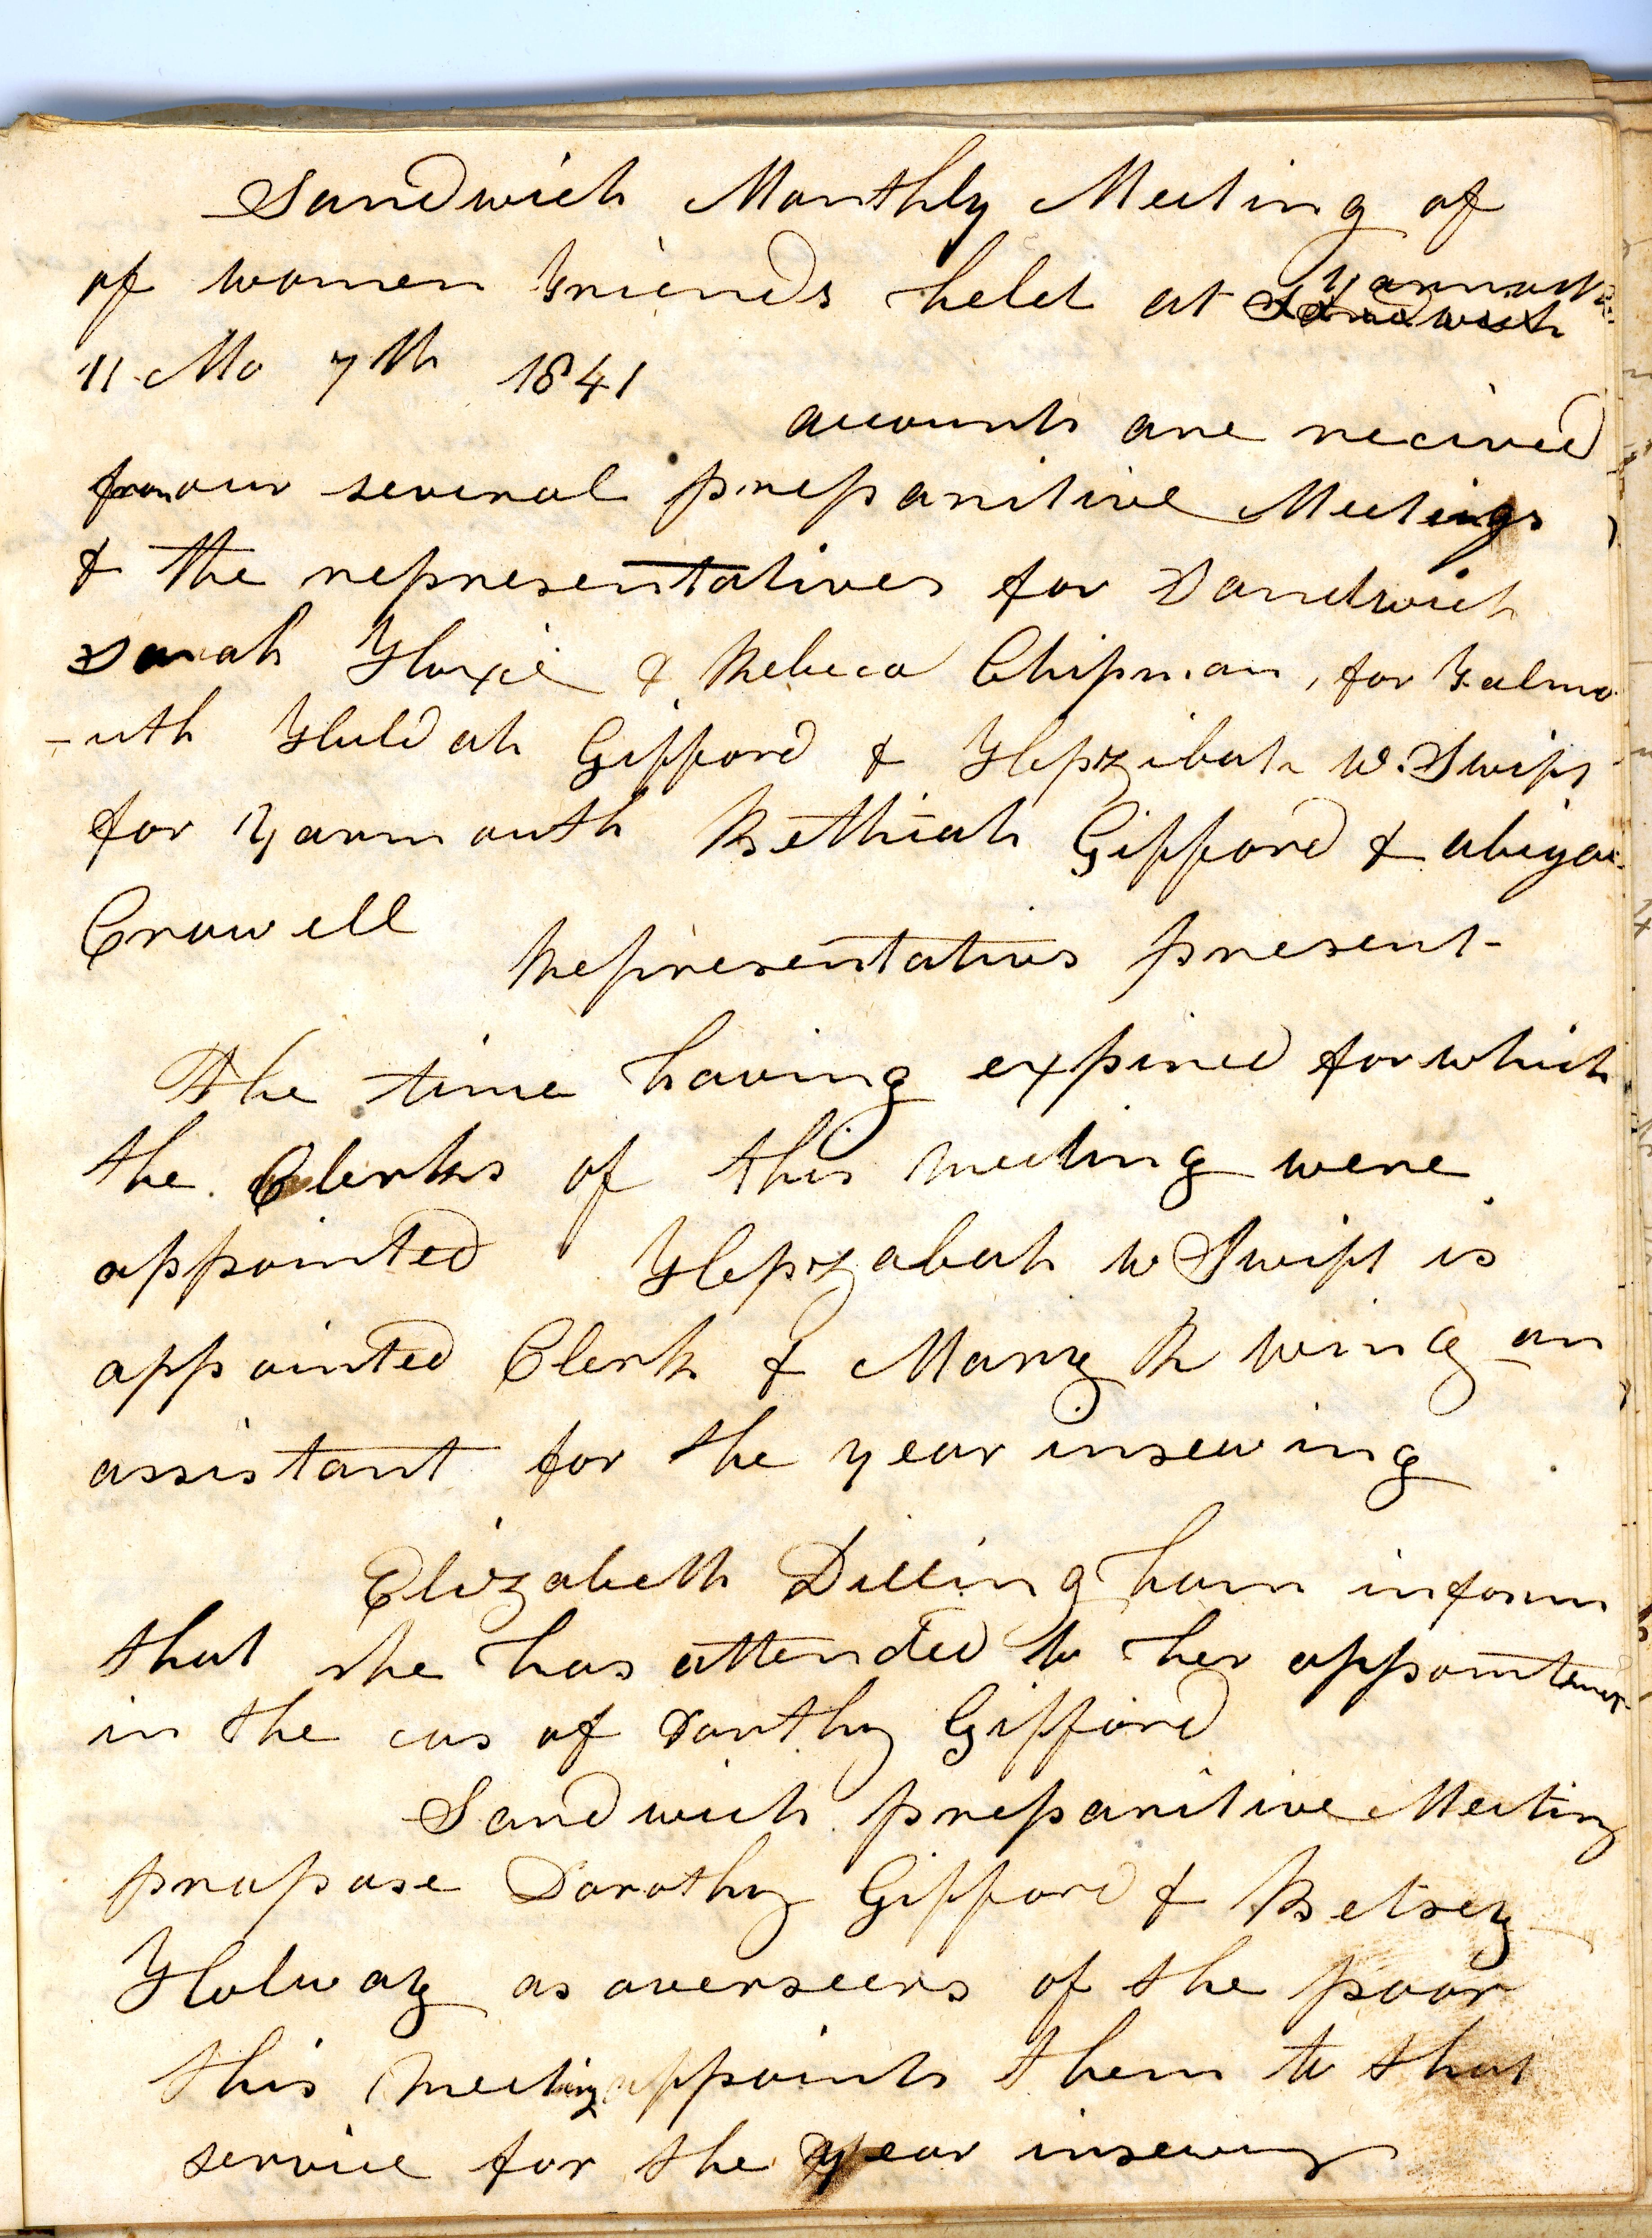 Sandwich Monthly Meeting of
of women Friends held at Yarmouth
Sandwich
11 Mo 7th 1841
accounts are recived
from our several preparitive Meetings
& the representatives for Sandwich
Sarah Hoxie & Rebeca Chipman, for Falmo
-uth Huldah Gifford & Hepzibah W. Swift
for Yarmouth Bethiah Gifford & abigai
Crowell
Representativs present-
The time having expired for which
the Clerks of this meeting were
appointed Hepzabah W Swift is
appointed Clerk & Mary R Wing an
assistant for the year insewing
Elizabeth Dillingham inform
that she has attended to her appointment
in the cas of Dorthy Gifford
Sandwich preparitive Meeting
propose Dorothy Gifford & Betsey
Holway as overseers of the poor
this meeting appoints them to that
service for the year insewing